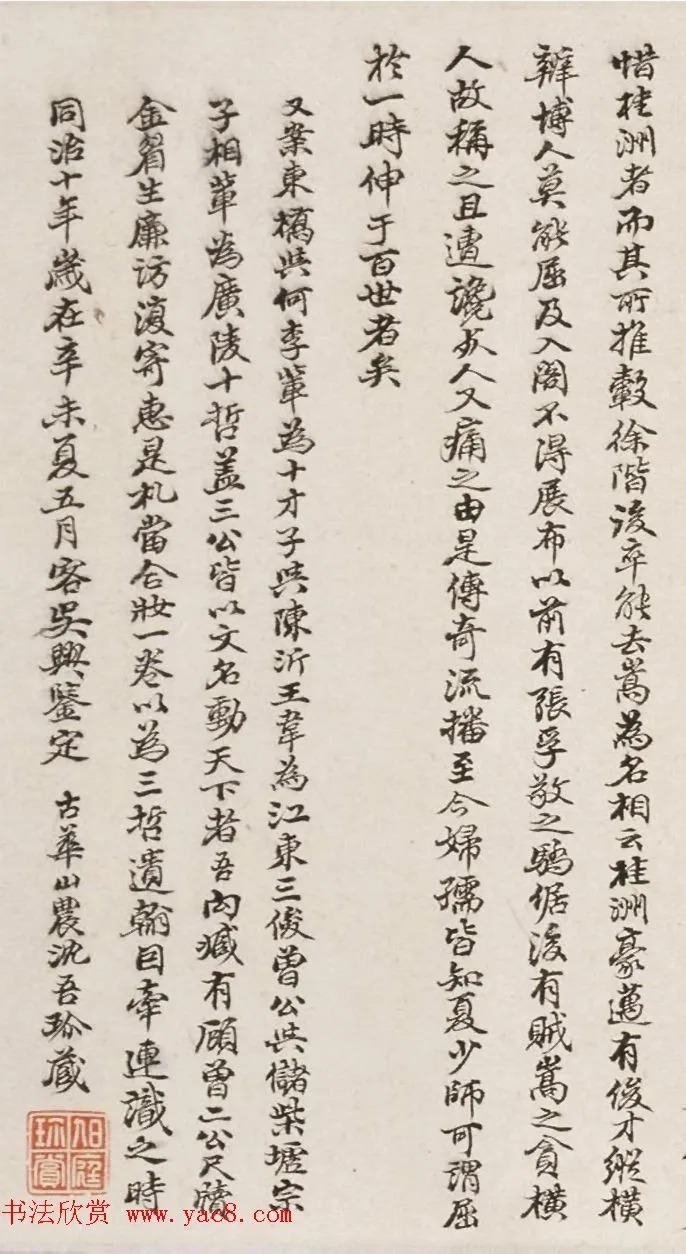 惜桂洲者而其所推轂徐階後卒能去嵩為名相云桂洲豪邁有俊才縱橫
辯博人莫能屈及入閣不得展布以前有張孚敬之驕倨後有賊嵩之貪橫
人故稱之且遭讒少人又痛之由是傳奇流播至今婦孺皆知夏少師可謂屈
於一時伸于百世者矣
又案東橋與何李輩為十才子與陳沂王韋為江東三俊曾公與儲柴墟宗
子相輩為廣陵十哲蓋三公皆以文名動天下者吾向臧有顧曾二公尺牘
金眉生廉訪復寄惠是札當合妝一卷以為三哲遺翰因牽連識之時
同治十年歲在辛未夏五月客吳興鑒定 古華山農沈吾珍藏
旭庭珍賞
书法欣赏 www.yac8.com